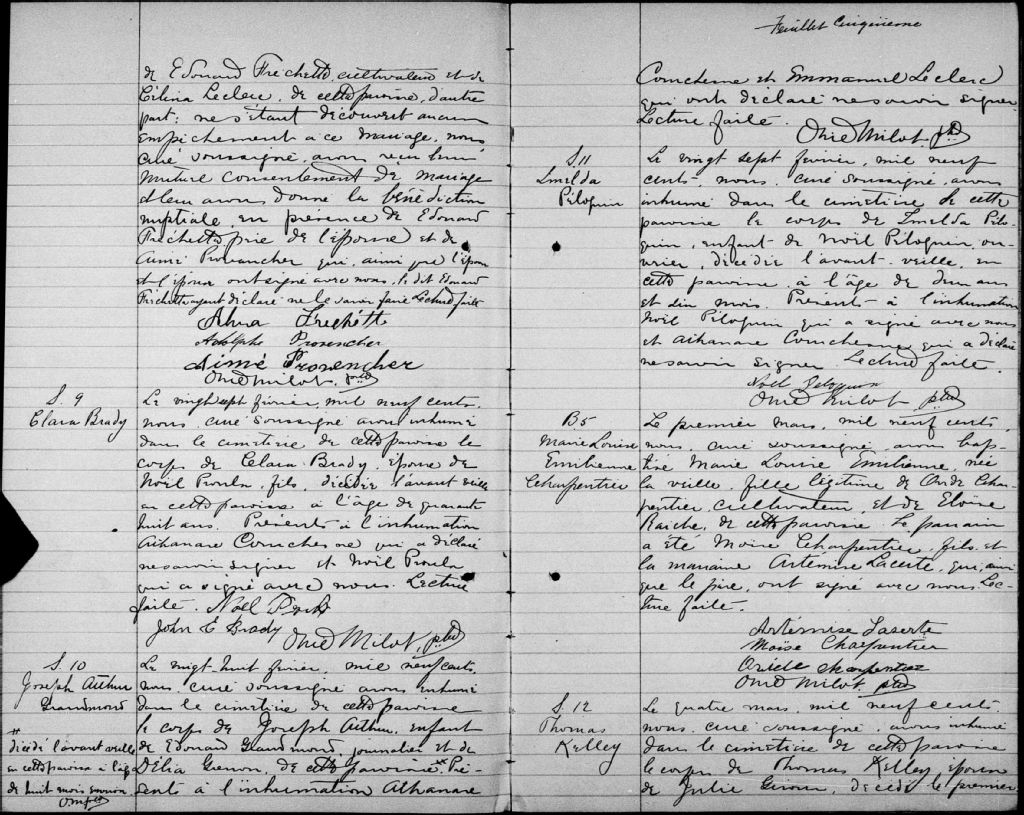 de Edouard Fréchette, cultivateur et de
Célina Leclerc, de cette paroisse, d'autre
part; ne s'étant découvert aucun
empêchement à ce mariage, nous
curé soussigné, avons reçu leur
mutuel consentement de mariage
et leur avons donné la bénédiction
nuptiale en présence de Edouard
Fréchette père de l'épouse et de
Aimé Provencher qui, ainsi que l'époux
et l'épouse ont signé avec nous, le dit Edouard
Fréchette ayant déclaré ne le savoir faire Lecture faite
Alma Frechette
Adolphe Provencher
Aimé Provencher
Ovid Milot, ptre
S. 9
Clara Brady
Le vingt sept février, mil neuf cents,
nous, curé soussigné avons inhumé
dans le cimetière de cette paroisse le
corps de Clara Brady, épouse de
Noël Proulx, fils, décédée l'avant veille
en cette paroisse à l'âge de quarante
huit ans. Présents à l'inhumation
Athanase Courchesne qui a déclaré
ne savoir signer et Noël Proulx
qui a signé avec nous. Lecture
faite. Noël Proulx
John E Brady
Ovid Milot, ptre
S. 10
Joseph Arthur
Grandmond
décédé l'avant veille
en cette paroisse à l'âge
de huit mois environ
Le vingt-huit février, mil neuf cents,
nous, curé soussigné avons inhumé
dans le cimetière de cette paroisse
le corps de Joseph Arthur, enfant
de Edouard Grandmond, journalier et de
Délia Grenon, de cette paroisse. Pré-
sents à l'inhumation Athanase
Feuillet Cinquième
Courchesne et Emmanuel Leclerc
qui ont déclaré ne savoir signer
Lecture faite.
Ovid Milot ptre
S. 11
Imelda
Péloquin
Le vingt sept février, mil neuf
cents, nous, curé soussigné, avons
inhumé dans le cimetière de cette
paroisse le corps de Imelda Pélo-
quin, enfant de Noël Péloquin, ou-
vrier, décédée l'avant-veille, en
cette paroisse, à l'âge de d'un an
et dix mois. Présents à l'inhumation
Noël Péloquin qui a signé avec nous
et Athanase Courchesne qui a déclaré
ne savoir signer Lecture faite.
Noël Peloquin
Ovid Milot ptre
B 5
Marie Louise
Emilienne
Charpentier
Le premier mars, mil neuf cents,
nous, curé soussigné, avons bap-
tisé Marie Louise Emilienne, née
la veille, fille légitime de Ovide Char-
pentier, cultivateur, et de Eloïse
Raiche, de cette paroisse. Le parrain
a été Moïse Charpentier, fils, et
la marraine Artémise Lacerte, qui, ainsi
que le père, ont signé avec nous. Lec-
ture faite.
Artémise Laserte
Moïse Charpentier
Ovide Charpentier
Ovid Milot ptre
S. 12
Thomas
Kelley
Le quatre mars, mil neuf cents,
nous, curé soussigné, avons inhumé
dans le cimetière de cette paroisse
le corps de Thomas Kelley, époux
de Julie Giroux, décédé le premier